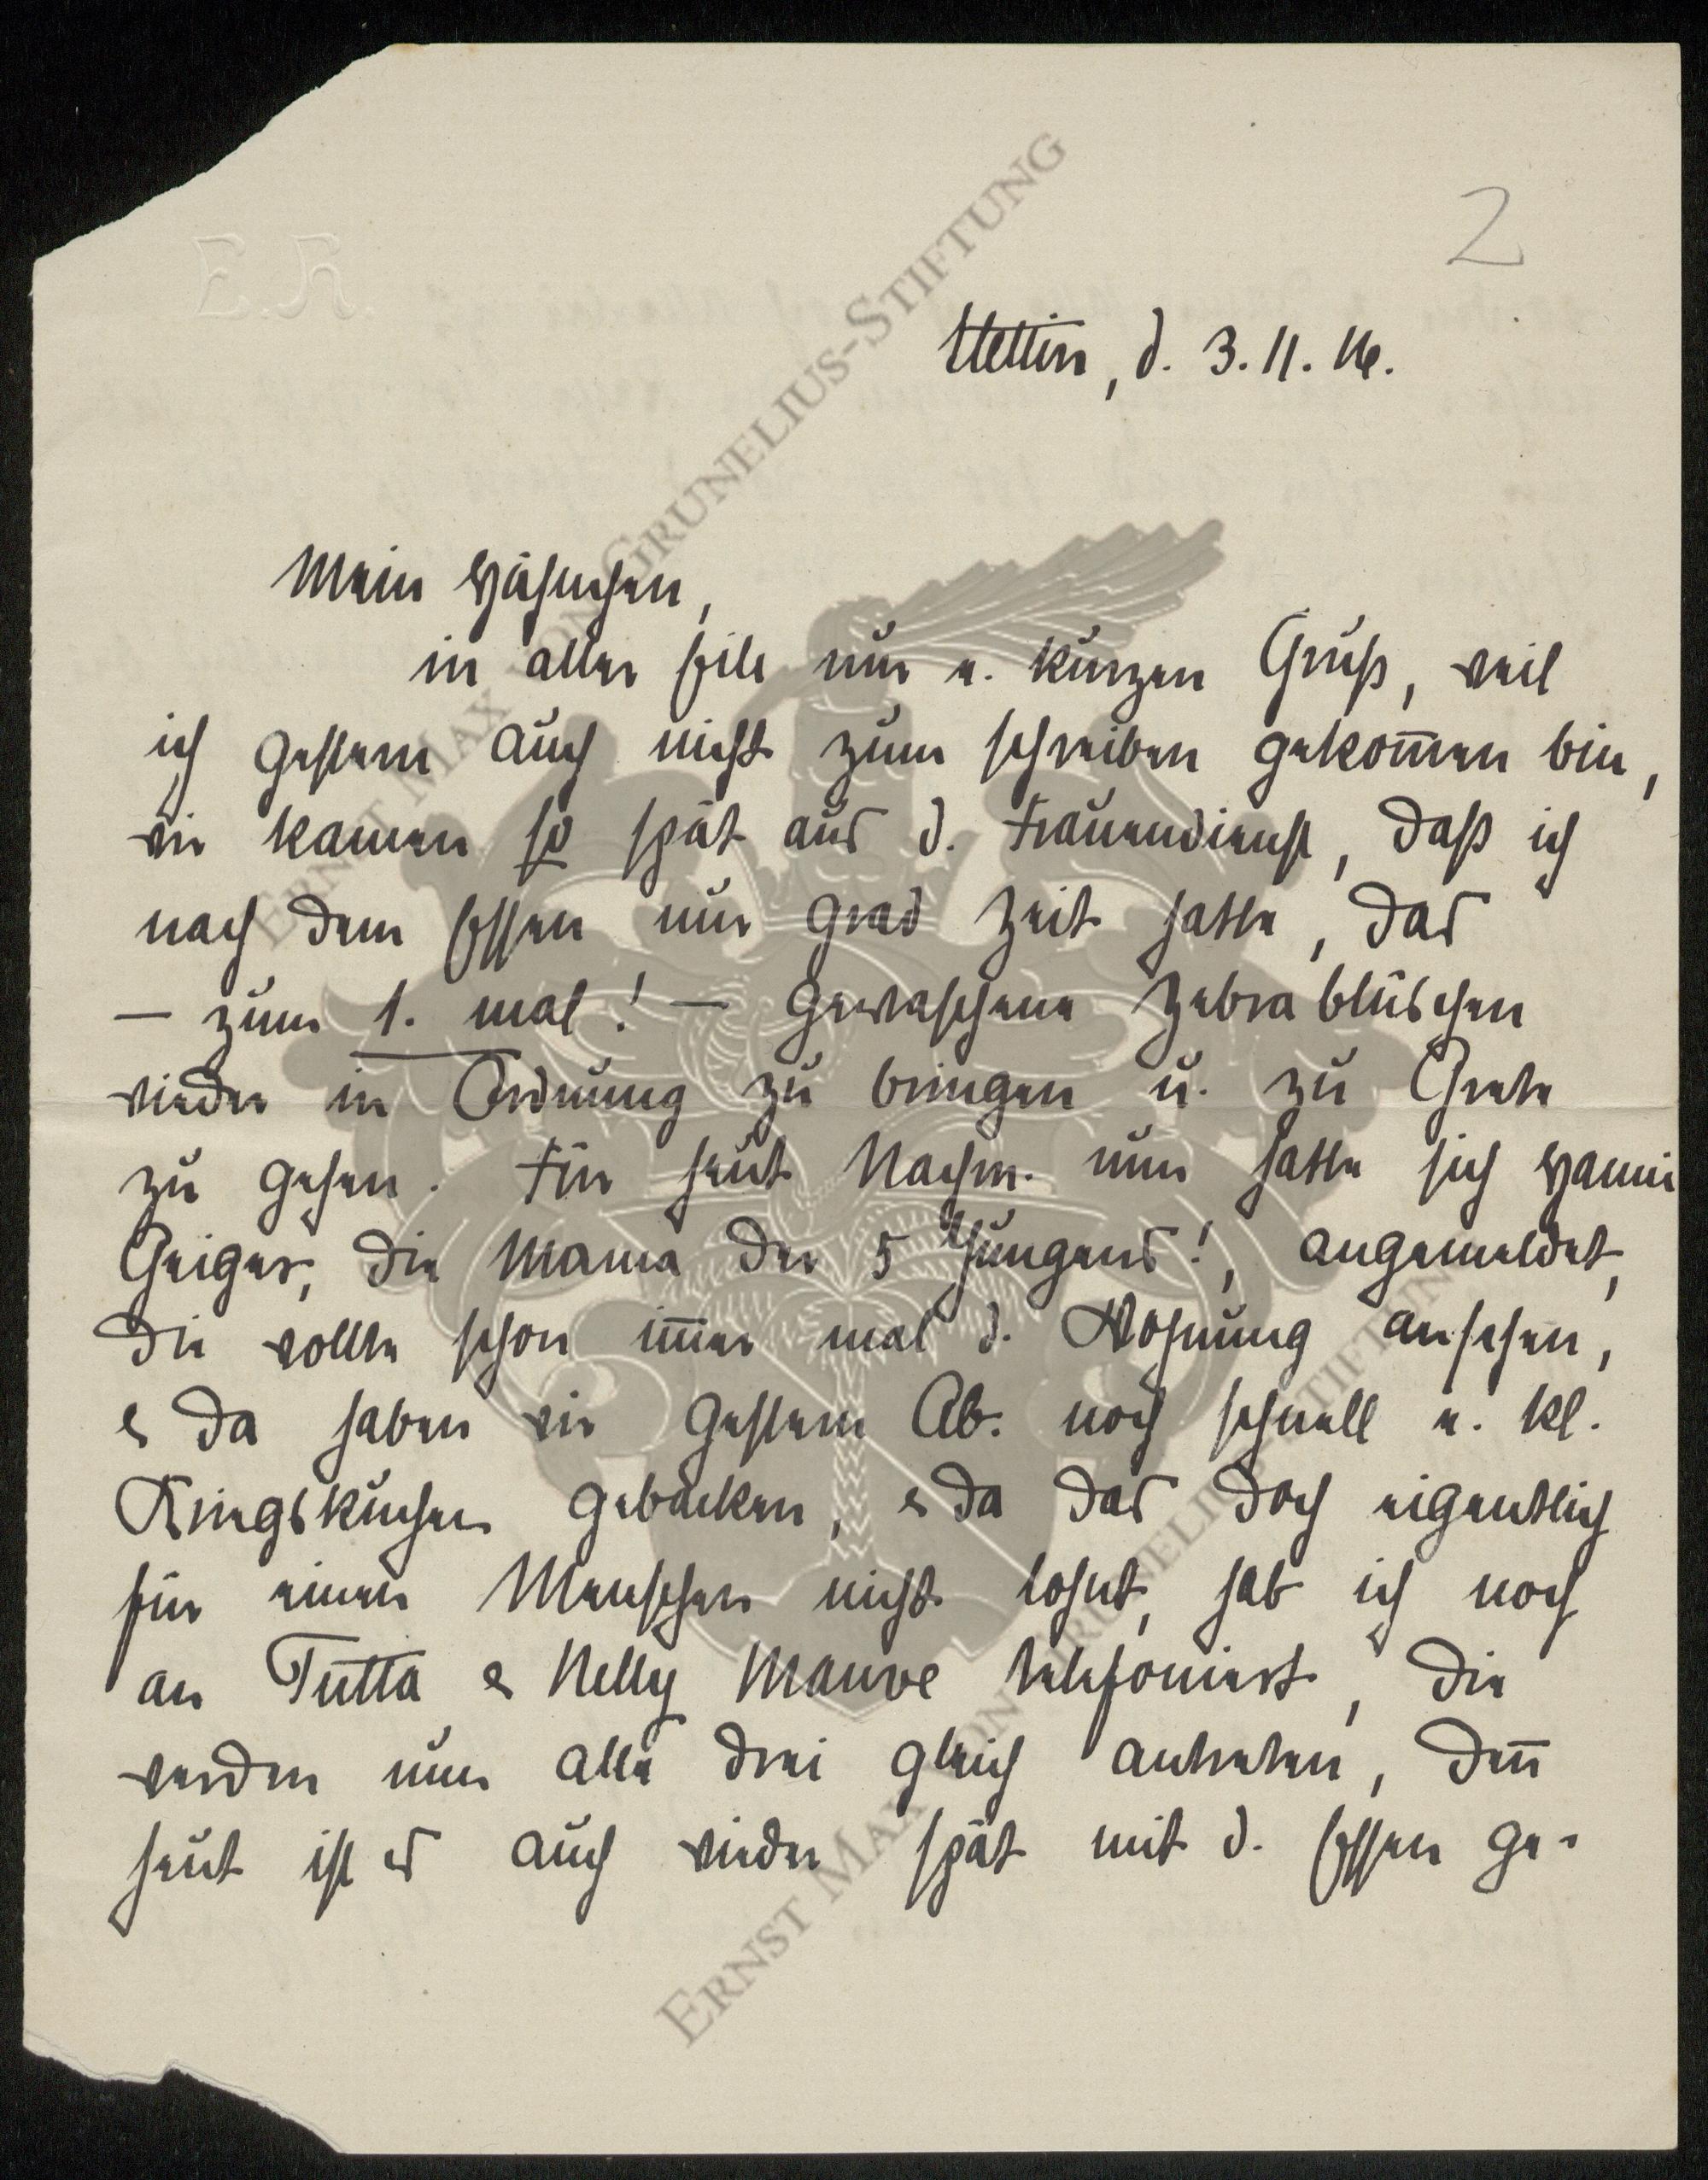 2
E.K.
Stettin, d. 3.11.16.
Mein Häschen,
in aller Eile nur e. kurzen Gruß, weil
ich gestern auch nicht zum schreiben gekom̅en bin,
wir kamen so spät aus d. Frauendienst, daß ich
nach dem Essen nur grad Zeit hatte, das
– zum 1. mal! – gewaschene Zebrablüschen
wieder in Ordnung zu bringen u. zu Grete
zu gehen. Für heut Nachm. nun hatte sich Hanni
Geiger, die Mama der 5 Jungens!, angemeldet,
die wollte schon im̅er mal d. Wohnung ansehen,
& da haben wir gestern Ab. noch schnell e. kl.
Kriegskuchen gebacken, & da das doch eigentlich
für einen Menschen nicht lohnt, hab ich noch
an Tutta & Nelly Manve telefoniert, die
werden nun alle drei gleich antreten, den̅
heut ist es auch wieder spät mit d. Essen ge-
ERNST MAX VON GRUNELIUS-STIFTUNG
ERNST MAX VON GRUNELIUS-STIFTUNG